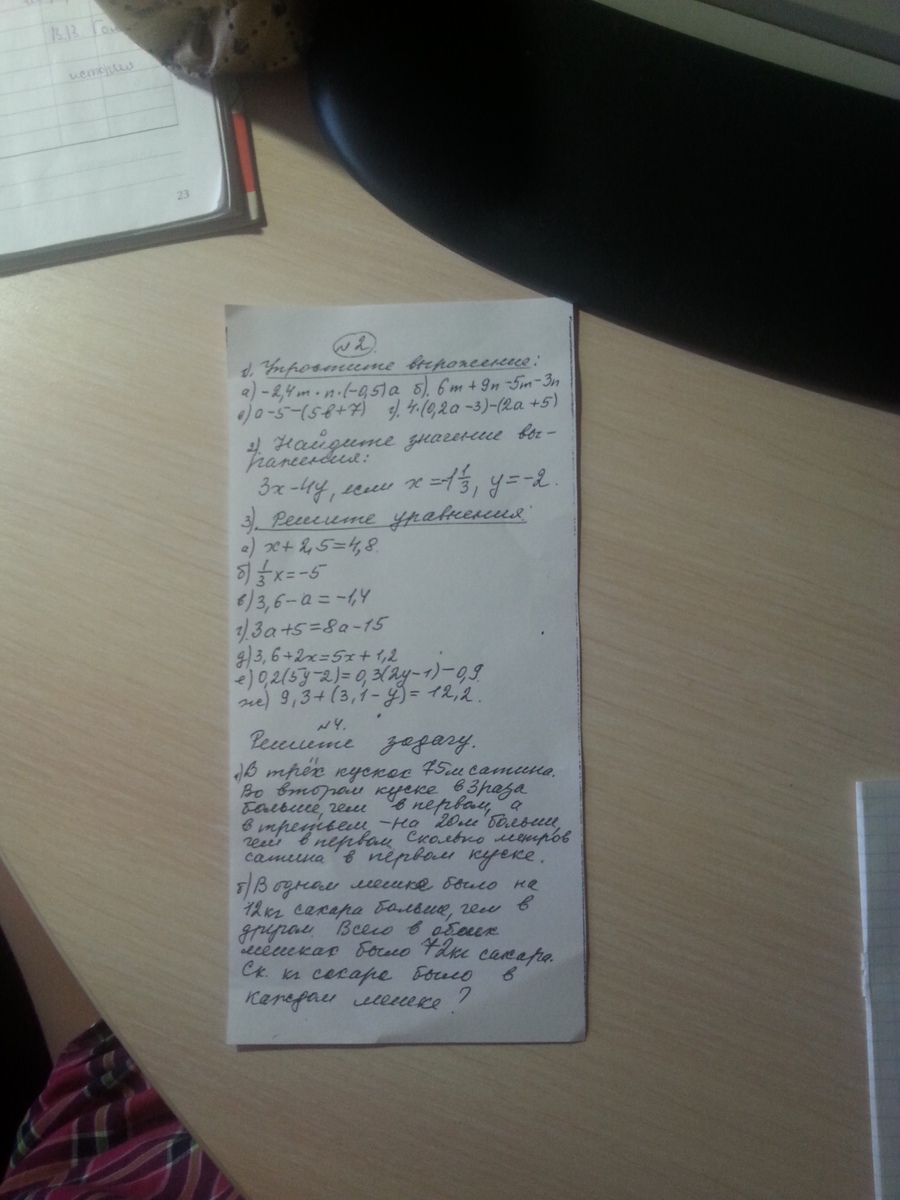 истори
23
№2.
1). Упростите выражение:
а) -2,4m·n·(-0,5)а б). 6m+9n-5m-3n
в) а-5-(5в+7) г). 4·(0,2а-3)-(2а+5)
2) Найдите значение вы-
ражения:
3х-4у, если х=-1 1/3, у=-2.
3). Решите уравнения:
а) х+2,5=4,8.
б) 1/3 х=-5
в) 3,6-а=-1,4
г). 3а+5=8а-15
д) 3,6+2х=5х+1,2
е) 0,2(5у-2)=0,3(2у-1)-0,9.
ж) 9,3+(3,1-у)=12,2.
№4.
Решите задачу.
а) В трёх кусках 75м сатина.
Во втором куске в 3 раза
больше, чем в первом, а
в третьем -на 20м больше,
чем в первом. Сколько метров
сатина в первом куске.
б) В одном мешке было на
12кг сахара больше, чем в
другом. Всего в обеих
мешках было 72кг сахара.
Ск. кг сахара было в
каждом мешке?